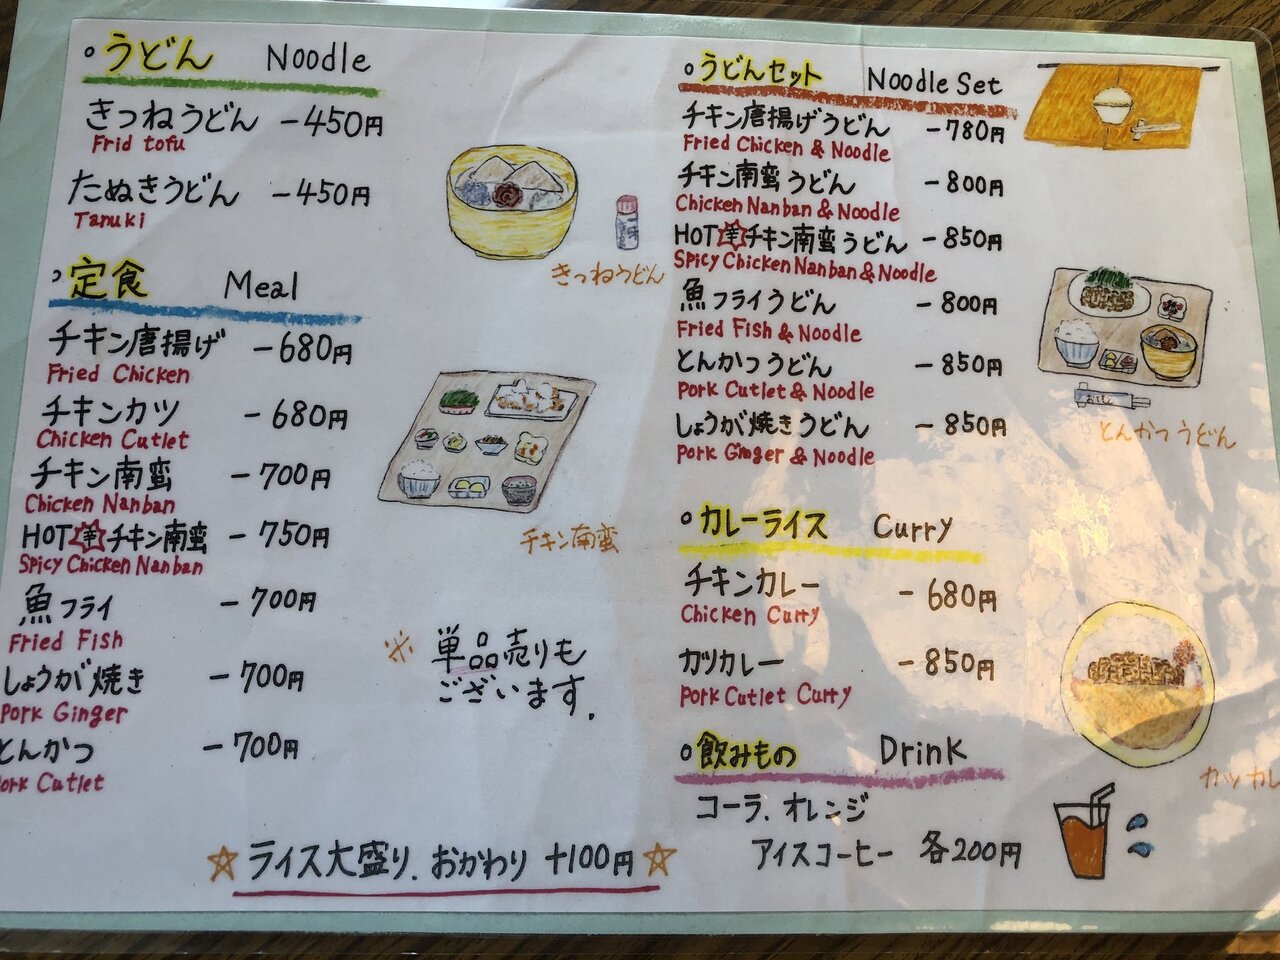 うどん Noodle
きつねうどん -450円
Frid tofu
たぬきうどん -450円
Tanuki
定食 Meal
チキン唐揚げ -680円
Fried Chicken
チキンカツ -680円
Chicken Cutlet
チキン南蛮 -700円
Chicken Nanban
HOT辛チキン南蛮 -750円
Spicy Chicken Nanban
魚フライ -700円
Fried Fish
しょうが焼き -700円
Pork Ginger
とんかつ -700円
ork Cutlet
きつねうどん
チキン南蛮
※ 単品売りも
ございます.
☆ライス大盛り.おかわり +100円☆
うどんセット Noodle Set
チキン唐揚げうどん -780円
Fried Chicken & Noodle
チキン南蛮うどん -800円
Chicken Nanban & Noodle
HOT辛チキン南蛮うどん -850円
Spicy Chicken Nanban & Noodle
魚フライうどん -800円
Fried Fish & Noodle
とんかつうどん -850円
Pork Cutlet & Noodle
しょうが焼きうどん -850円
Pork Ginger & Noodle
とんかつうどん
カレーライス Curry
チキンカレー -680円
Chicken Curry
カツカレー -850円
Pork Cutlet Curry
カツカレ
飲みもの Drink
コーラ.オレンジ
アイスコーヒー 各200円